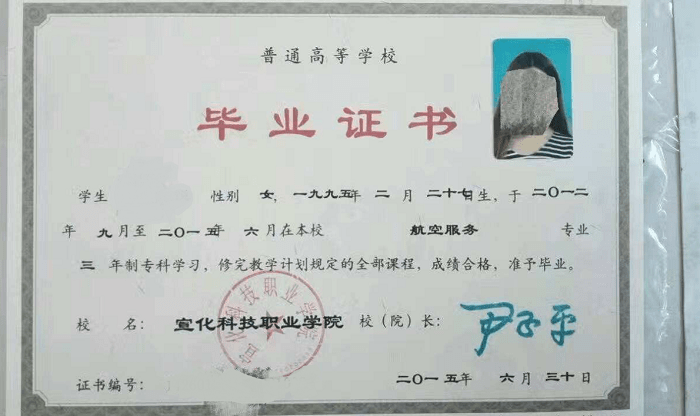 普通高等学校
毕业证书
学生 性别 女，一九九五年 二 月 二十七日生，于 二〇一二
年 九月至 二〇一五年 六月在本校 航空服务 专业
三 年制专科学习，修完教学计划规定的全部课程，成绩合格，准予毕业。
校 名： 宣化科技职业学院 校（院）长： 尹玉平
宣化科技职业学院
证书编号： 二〇一五年 六月 三十日